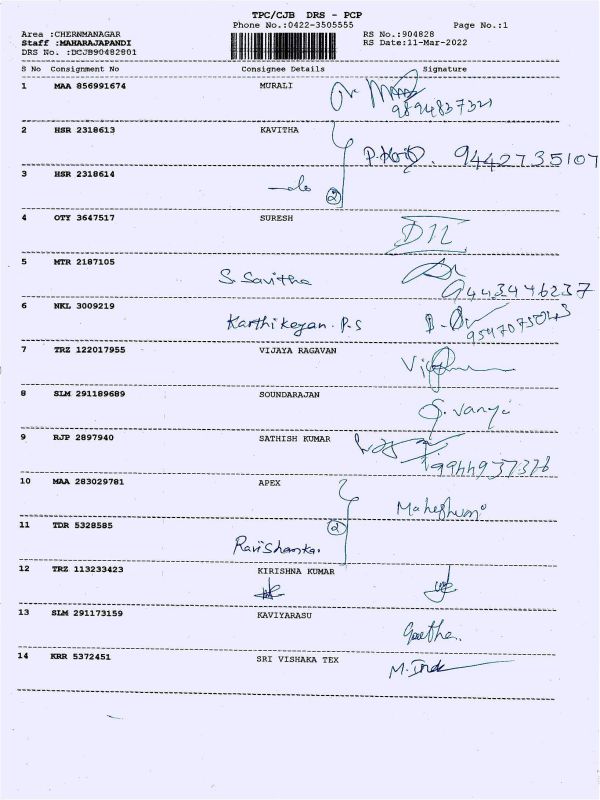 TPC/CJB DRS - PCP
Phone No.:0422-3505555 Page No.:1
Area :CHERNMANAGAR RS No.:904828
Staff :MAHARAJAPANDI RS Date:11-Mar-2022
DRS No. :DCJB90482801
S No Consignment No Consignee Details Signature
1 MAA 856991674 MURALI
9894837321
2 HSR 2318613 KAVITHA
9442735107
3 HSR 2318614
do 2
4 OTY 3647517 SURESH
5 MTR 2187105 S. Savitha
9443446237
6 NKL 3009219 Karthikeyan. P.S
7 TRZ 122017955 VIJAYA RAGAVAN
8 SLM 291189689 SOUNDARAJAN
9 RJP 2897940 SATHISH KUMAR
9944937376
10 MAA 283029781 APEX
Maheshwari
2
11 TDR 5328585
Ravishankar
12 TRZ 113233423 KIRISHNA KUMAR
13 SLM 291173159 KAVIYARASU
Geetha.
14 KRR 5372451 SRI VISHAKA TEX